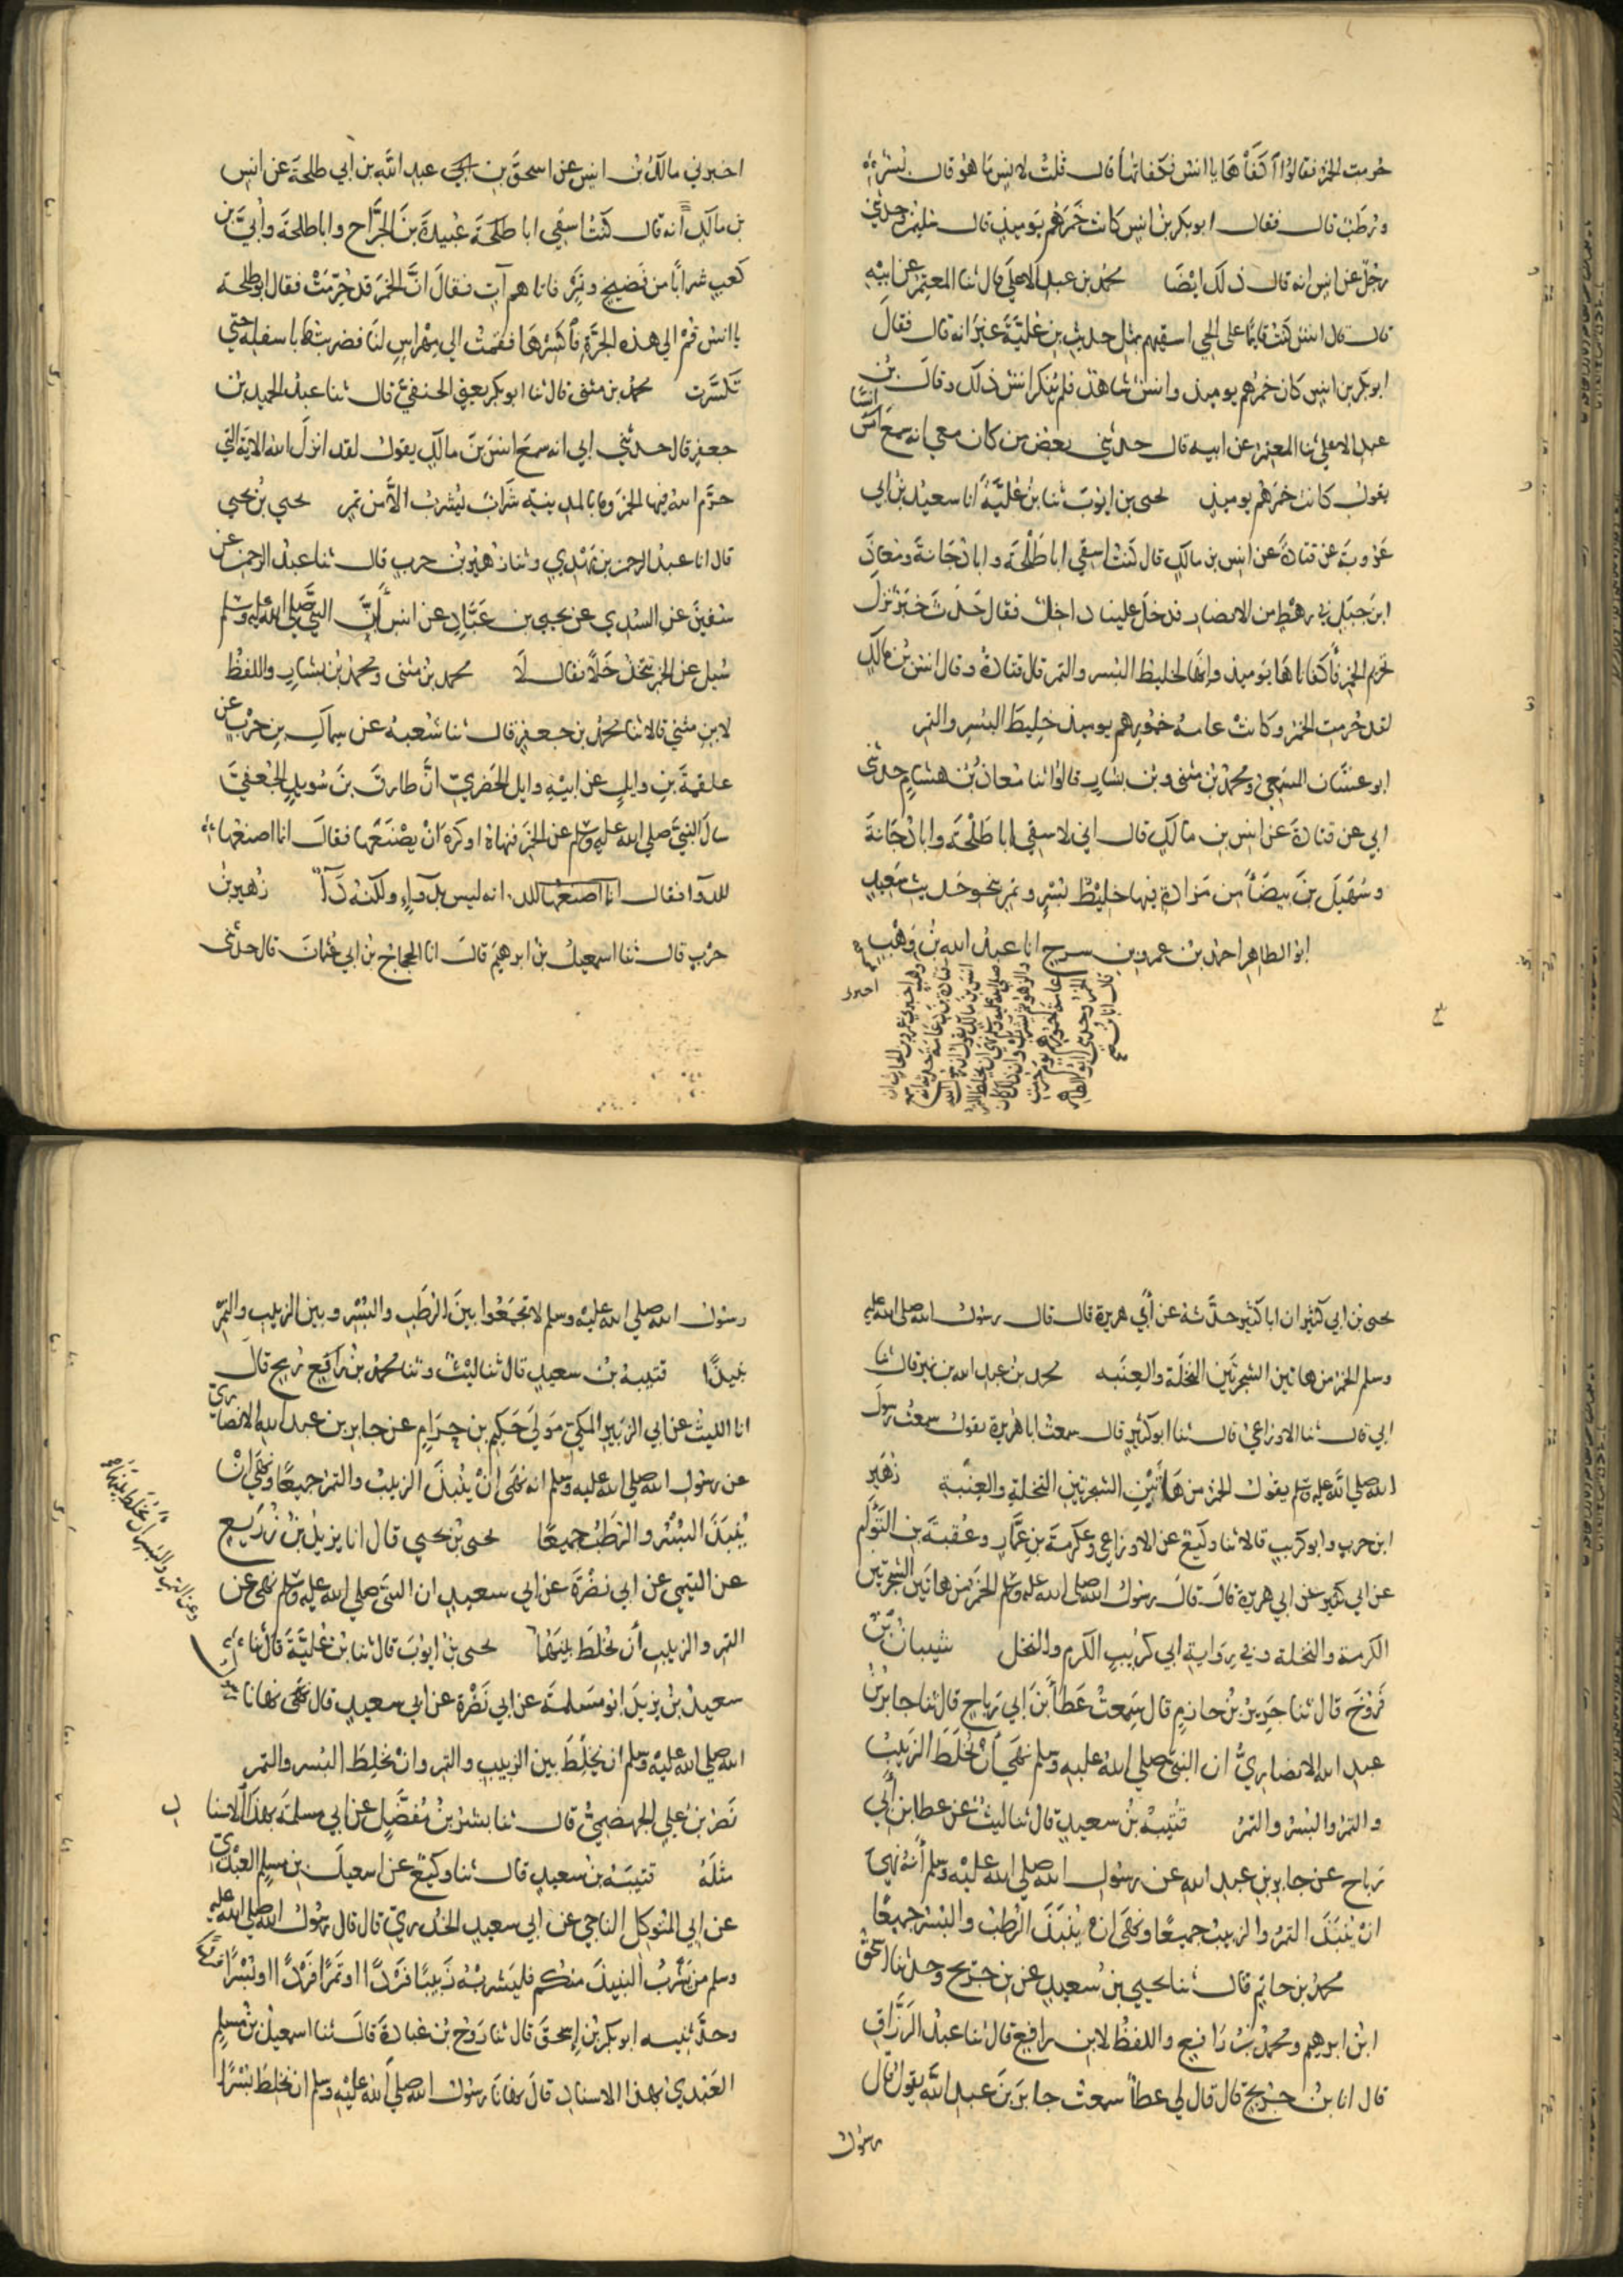 حرمت الخمر فقالوا اكفأها يا انس فكفأتها قال قلت لانس ما هو قال بسر
ورطب قال فقال ابو بكر بن انس كانت خمرهم يوميذ قال سليمن وحدثني
رجل عن انس انه قال ذلك ايضا محمد بن عبد الاعلى قال ثنا المعتمر عن ابيه
قال قال انس كنت قايما على الحي اسقيهم بمثل حديث بن علية غير انه قال فقال
ابو بكر بن انس كان خمرهم يوميذ وانس شاهد فلم ينكر انس ذلك وقال بن
عبد الاعلى ثنا المعتمر عن ابيه قال حدثني بعض من كان معي انه سمع انسا
يقول كانت خمرهم يوميذ يحيى بن ايوب ثنا بن علية انا سعيد بن ابي
عروبة عن قتادة عن انس بن مالك قال كنت اسقي ابا طلحة وابا دجانة ومعاذ
ابن جبل في رهط من الانصار فدخل علينا داخل فقال حدث خبر نزل
تحريم الخمر فأكفاناها يوميذ وانها لخليط البسر والتمر قال قتادة وقال انس بن مالك
لقد حرمت الخمر وكانت عامة خمورهم يوميذ خليط البسر والتمر
ابو غسان المسمعي ومحمد بن مثنى وبن بشار قالوا ثنا معاذ بن هشام حدثني
ابي عن قتادة عن انس بن مالك قال اني لاسقي ابا طلحة وابا دجانة
وسهيل بن بيضا من مزادة فيها خليط بسر وتمر بنحو حديث سعيد
ابو الطاهر احمد بن عمرو بن سرح انا عبد الله بن وهب
اخبرني
وهب اخبرني عمرو بن الحارث ان
قتادة بن دعامة حدثه انه سمع
انس بن مالك يقول ان رسول الله
صلى الله عليه وسلم نهى ان يخلط التمر
والزهو ثم يشرب وان ذلك كان
عامة خمورهم يوم حرمت
الخمر وحدثني ابو الطاهر
قال انا بن وهب
اخبرني مالك بن انس عن اسحق بن عبد الله بن ابي طلحة عن انس
بن مالك انه قال كنت اسقي ابا طلحة عبيدة بن الجراح وابا طلحة وأبي بن
كعب شرابا من فضيخ وتمر فاتاهم آت فقال ان الخمر قد حرمت فقال ابو طلحة
يا انس قم الى هذه الجرة فاكسرها فقمت الى مهراس لنا فضربتها باسفله حتى
تكسرت محمد بن مثنى قال ثنا ابو بكر يعني الحنفي قال ثنا عبد الحميد بن
جعفر قال حدثني ابي انه سمع انس بن مالك يقول لقد انزل الله الاية التي
حرم الله فيها الخمر وما بالمدينة شراب يشرب الا من تمر يحيى بن يحيى
قال انا عبد الرحمن بن مهدي وثنا زهير بن حرب قال ثنا عبد الرحمن عن
سفين عن السدي عن يحيى بن عباد عن انس أن النبي صلى الله عليه وسلم
سيل عن الخمر تتخذ خلا فقال لا محمد بن مثنى ومحمد بن بشار واللفظ
لابن مثنى قالا ثنا محمد بن جعفر قال ثنا شعبة عن سماك بن حرب عن
علقمة بن وايل عن ابيه وايل الحضري ان طارق بن سويد الجعفي
سال النبي صلى الله عليه وسلم عن الخمر فنهاه او كره ان يصنعها فقال انما اصنعها
للدوا فقال انما اصنعها للد انه ليس بدواء ولكنه دآء زهير بن
حرب قال ثنا اسمعيل بن ابرهيم قال انا الحجاج بن ابي عثمان قال حدثني
يحيى بن ابي كثير ان ابا كثير حدثه عن أبي هريرة قال قال رسول الله صلى الله عليه
وسلم الخمر من هاتين الشجرتين النخلة والعنبة محمد بن عبد الله بن نمير قال ثنا
ابي قال ثنا الاوزاعي قال ثنا ابو كثير قال سمعت ابا هريرة يقول سمعت رسول
الله صلى الله عليه وسلم يقول الخمر من هاتين الشجرتين النخلة والعنبة زهير
ابن حرب وابو كريب قالا ثنا وكيع عن الاوزاعي وعكرمة بن عمار وعقبة بن التوأم
عن ابي كثير عن ابي هريرة قال قال رسول الله صلى الله عليه وسلم الخمر من هاتين الشجرتين
الكرمة والنخلة وفي رواية ابي كريب الكرم والنخل شيبان بن
فروخ قال ثنا جرير بن حازم قال سمعت عطا بن ابي رباح قال ثنا جابر بن
عبد الله الانصاري ان النبي صلى الله عليه وسلم نهى أن يخلط الزبيب
والتمر والبسر والتمر قتيبة بن سعيد قال ثنا ليث عن عطا بن أبي
رباح عن جابر بن عبد الله عن رسول الله صلى الله عليه وسلم أنه نهى
ان ينبذ التمر والزبيب جميعا ونهى ان ينبذ الرطب والبسر جميعا
محمد بن حاتم قال ثنا يحيى بن سعيد عن بن جريج وحدثنا اسحق
ابن ابرهيم ومحمد بن رافع واللفظ لابن رافع قال ثنا عبد الرزاق
قال انا بن جريج قال قال لي عطا سمعت جابر بن عبد الله يقول قال
رسول
رسول الله صلى الله عليه وسلم لا تجمعوا بين الرطب والبسر وبين الزبيب والتمر
نبيذا قتيبة بن سعيد قال ثنا ليث وثنا محمد بن رافع ريح قال
انا الليث عن ابي الزبير المكي مولى حكيم بن حزام عن جابر بن عبد الله الانصاري
عن رسول الله صلى الله عليه وسلم انه نهى أن ينبذ الزبيب والتمر جميعا ونهى ان
ينبذ البسر والرطب جميعا يحيى بن يحيى قال انا يزيد بن زريع
عن التيمي عن ابي نضرة عن ابي سعيد ان النبي صلى الله عليه وسلم نهى عن
التمر والزبيب أن يخلط بينهما يحيى بن ايوب قال ثنا بن علية قال ثنا
سعيد بن يزيد ابو مسلمة عن ابي نضرة عن ابي سعيد قال نهانا
الله صلى الله عليه وسلم ان نخلط بين الزبيب والتمر وان نخلط البسر والتمر
نصر بن علي الجهضمي قال ثنا بشر بن مفضل عن ابي مسلمة بهذا الاسناد
مثله قتيبة بن سعيد قال ثنا وكيع عن اسمعيل بن مسلم العبدي
عن ابي المتوكل الناجي عن ابي سعيد الخدري قال قال رسول الله صلى الله عليه
وسلم من شرب النبيذ منكم فليشربه زبيبا فردا او تمرا فردا او بسرا فردا
وحدثنيه ابو بكر بن إسحق قال ثنا روح بن عبادة قال ثنا اسمعيل بن مسلم
العبدي بهذا الاسناد قال نهانا رسول الله صلى الله عليه وسلم ان نخلط بسرا
وعن التمر والبسر أن يخلط بينهما